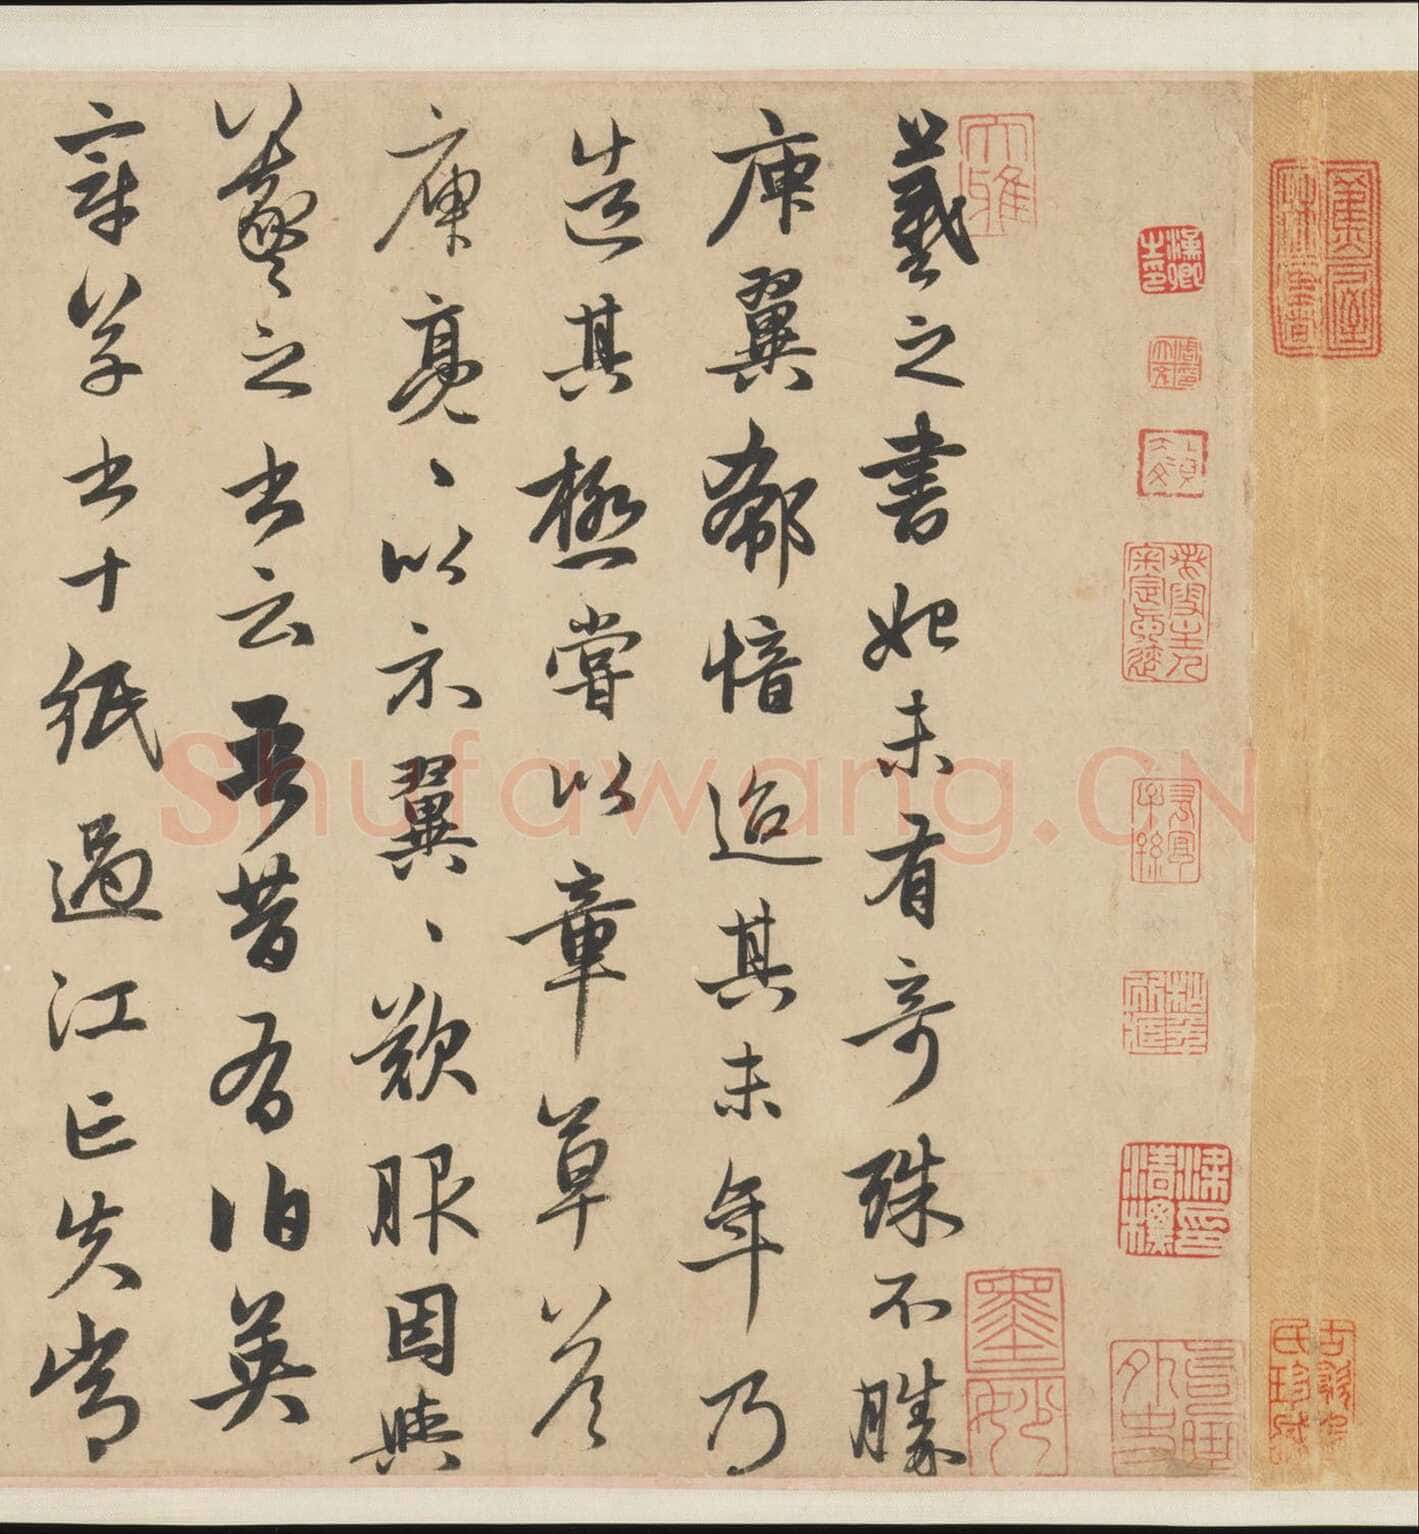 羲之書始未有奇殊不勝
庾翼郗愔迨其末年乃
造其極嘗以章草答
庾亮亮以示翼翼歎服因與
羲之书云吾昔有伯英
章草书十纸過江亡失常
大雅
墨妙
漢卿之印
Shufawang.CN